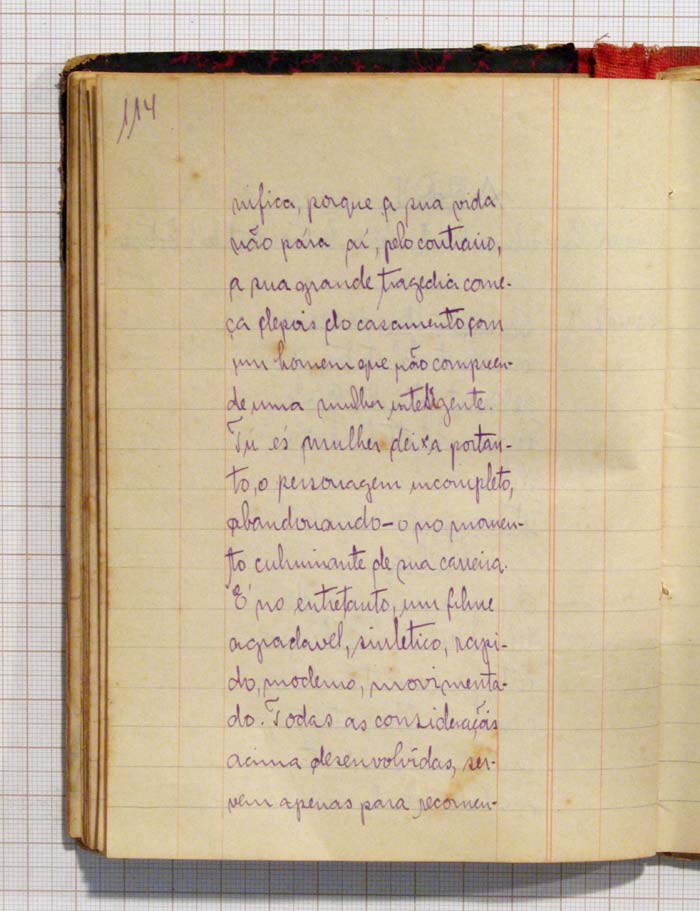 114
nifica, porque a sua vida
não pára aí, pelo contrario,
a sua grande tragedia come-
ça depois do casamento com
um homem que não compreen-
de uma mulher inteligente.
Tú és mulher deixa portan-
to, o personagem incompleto,
abandonando-o no momen-
to culminante de sua carreira.
É no entretanto, um filme
agradavel, sintetico, rapi-
do, moderno, movimenta-
do. Todas as considerações
acima desenvolvidas, ser-
vem apenas para recomen-